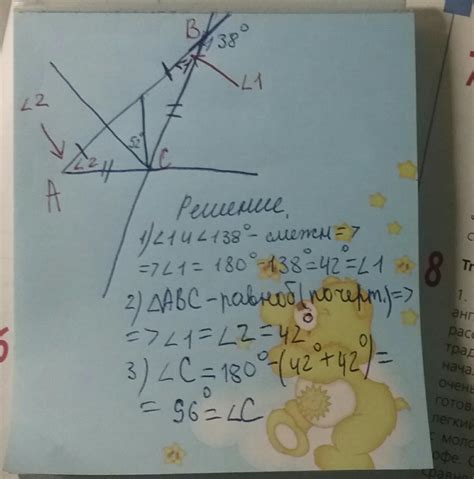 B 138°
∠1
∠2
52°
∠2
A
C
Решение.
1) ∠1 и ∠138° - смежн =>
=> ∠1 = 180° - 138° = 42° = ∠1
2) △ABC - равноб (по черт.) =>
=> ∠1 = ∠2 = 42°
3) ∠C = 180° - (42° + 42°) =
= 96° = ∠C
8
Tr
1.
анг
расс
трад
нача
очень
готов
легкий
с моло
офе. С